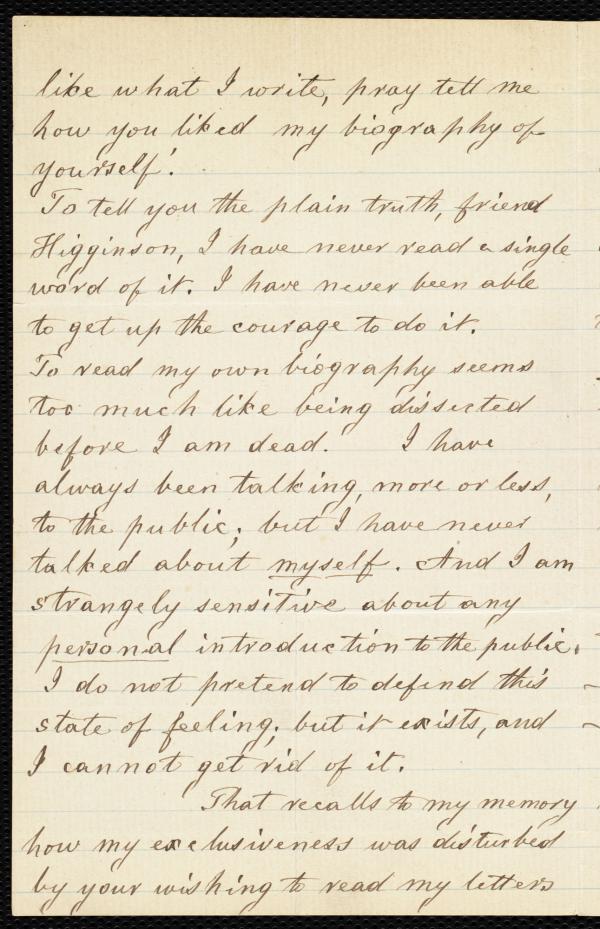 like what I write, pray tell me
how you liked my biography of
yourself!
To tell you the plain truth, friend
Higginson, I have never read a single
word of it. I have never been able
to get up the courage to do it.
To read my own biography seems
too much like being dissected
before I am dead. I have
always been talking, more or less,
to the public; but I have never
talked about myself. And I am
strangely sensitive about any
personal introduction to the public.
I do not pretend to defend this
state of feeling; but it exists, and
I cannot get rid of it.
That recalls to my memory
how my exclusiveness was disturbed
by your wishing to read my letters